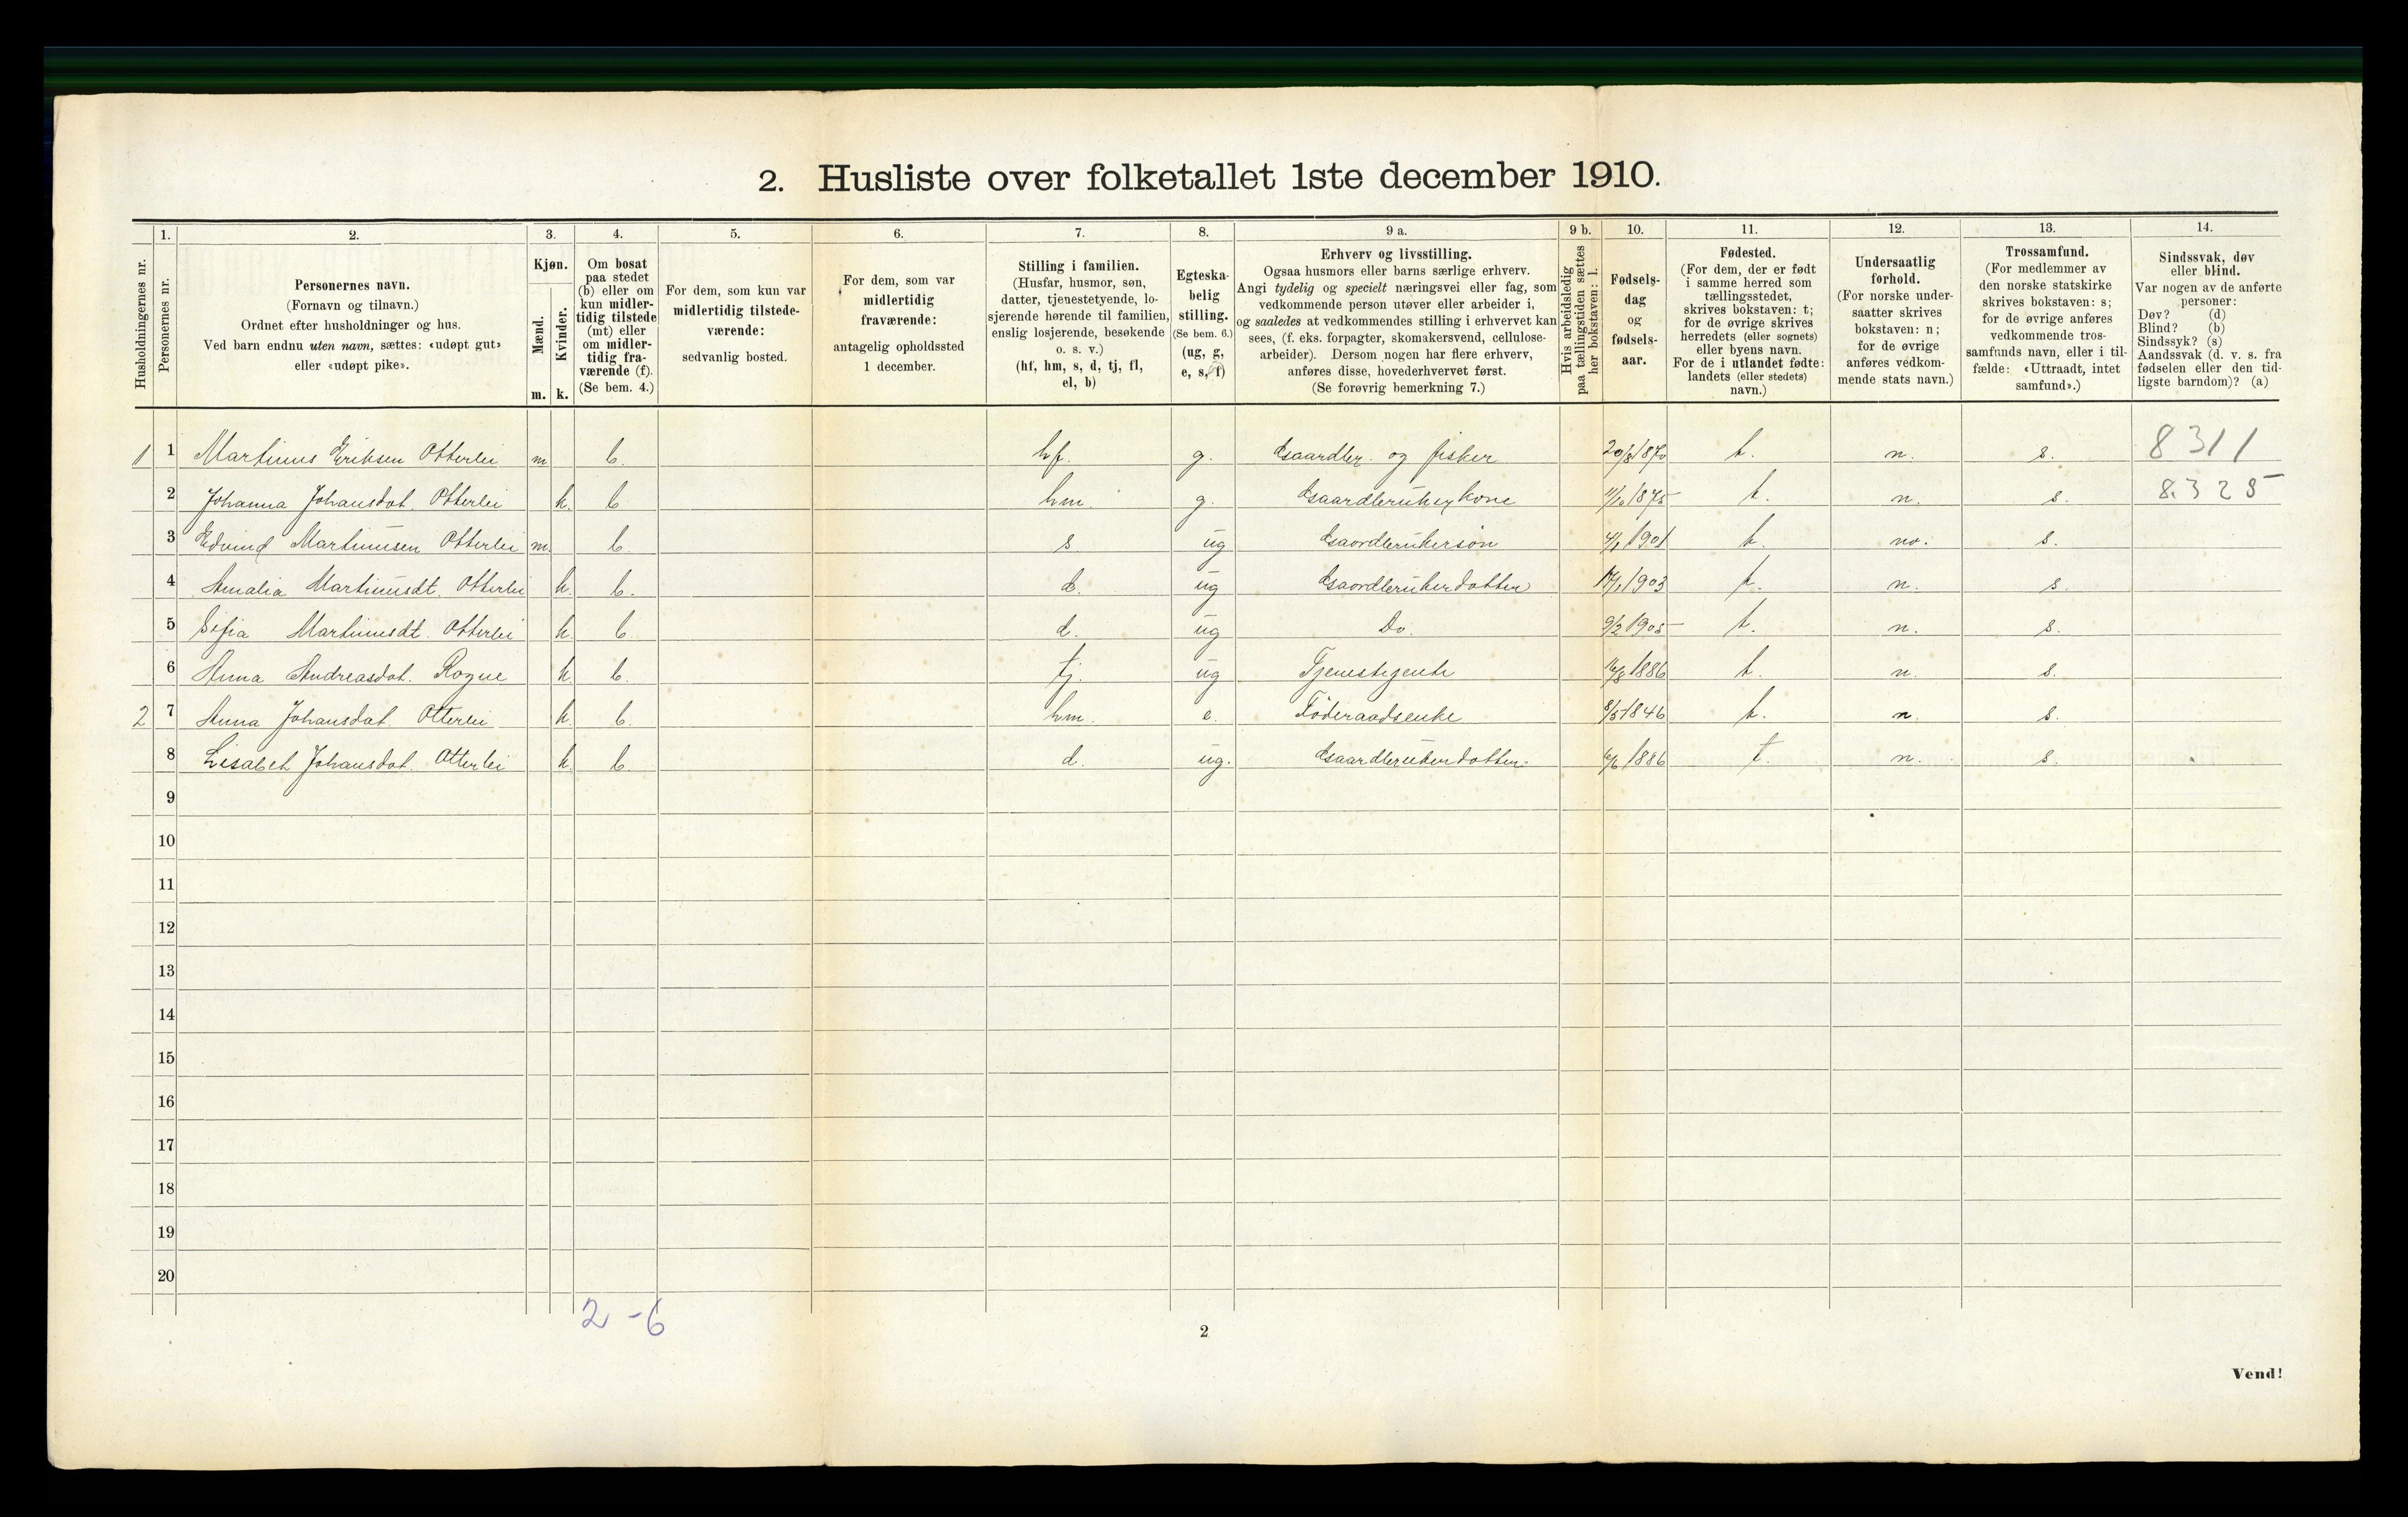 2. Husliste over folketallet 1ste december 1910.
Husholdningernes nr.
1. Personernes nr.
2. Personernes navn.
(Fornavn og tilnavn.)
Ordnet efter husholdninger og hus.
Ved barn endnu uten navn, sættes: «udøpt gut»
eller «udøpt pike».
3. Kjøn.
Mænd. m.
Kvinder. k.
4. Om bosat
paa stedet
(b) eller om
kun midler-
tidig tilstede
(mt) eller
om midler-
tidig fra-
værende (f).
(Se bem. 4.)
5. For dem, som kun var
midlertidig tilstede-
værende:
sedvanlig bosted.
6. For dem, som var
midlertidig
fraværende:
antagelig opholdssted
1 december.
7. Stilling i familien.
(Husfar, husmor, søn,
datter, tjenestetyende, lo-
sjerende hørende til familien,
enslig losjerende, besøkende
o. s. v.)
(hf, hm, s, d, tj, fl,
el, b)
8. Egteska-
belig
stilling.
(Se bem. 6.)
(ug, g,
e, s, f)
9 a. Erhverv og livsstilling.
Ogsaa husmors eller barns særlige erhverv.
Angi tydelig og specielt næringsvei eller fag, som
vedkommende person utøver eller arbeider i,
og saaledes at vedkommendes stilling i erhvervet kan
sees, (f. eks. forpagter, skomakersvend, cellulose-
arbeider). Dersom nogen har flere erhverv,
anføres disse, hovederhvervet først.
(Se forøvrig bemerkning 7.)
9 b. Hvis arbeidsledig
paa tællingstiden sættes
her bokstaven: l.
10. Fødsels-
dag
og
fødsels-
aar.
11. Fødested.
(For dem, der er født
i samme herred som
tællingsstedet,
skrives bokstaven: t;
for de øvrige skrives
herredets (eller sognets)
eller byens navn.
For de i utlandet fødte:
landets (eller stedets)
navn.)
12. Undersaatlig
forhold.
(For norske under-
saatter skrives
bokstaven: n;
for de øvrige
anføres vedkom-
mende stats navn.)
13. Trossamfund.
(For medlemmer av
den norske statskirke
skrives bokstaven: s;
for de øvrige anføres
vedkommende tros-
samfunds navn, eller i til-
fælde: «Uttraadt, intet
samfund».)
14. Sindssvak, døv
eller blind.
Var nogen av de anførte
personer:
Døv? (d)
Blind? (b)
Sindssyk? (s)
Aandssvak (d. v. s. fra
fødselen eller den tid-
ligste barndom)? (a)
1 1 Martinus Eriksen Otterlei m b. hf. g. Gaardbr. og fisker 20/8 1870 t. n. s. 8311
2 Johanna Johansdat. Otterlei k. b hm. g. Gaardbrukerkone 1875 t. n. s. 8325
3 Edvind Martinusen Otterlei m. b. s. ug Gaardbrukersøn 4/1 1901 t. no. s.
4 Amalia Martinusdt. Otterlei k. b. d. ug Gaardbrukerdatter 1903 t. n. s.
5 Sofia Martinusdt. Otterlei k. b. d. ug Do. 9/2 1905 t. n. s.
6 Anna Andreasdat. Rogne k. b. tj. ug Tjenestegente 16/8 1886 t. n. s.
2 7 Anna Johansdat. Otterlei k. b. hm. e. Föderaadsenke 8/5 1846 t. n. s.
8 Lisabet Johansdat. Otterlei k. b. d. ug. Gaardbrukerdatter 6/6 1886 t. n. s.
9
10
11
12
13
14
15
16
17
18
19
20
2 - 6
2
Vend!